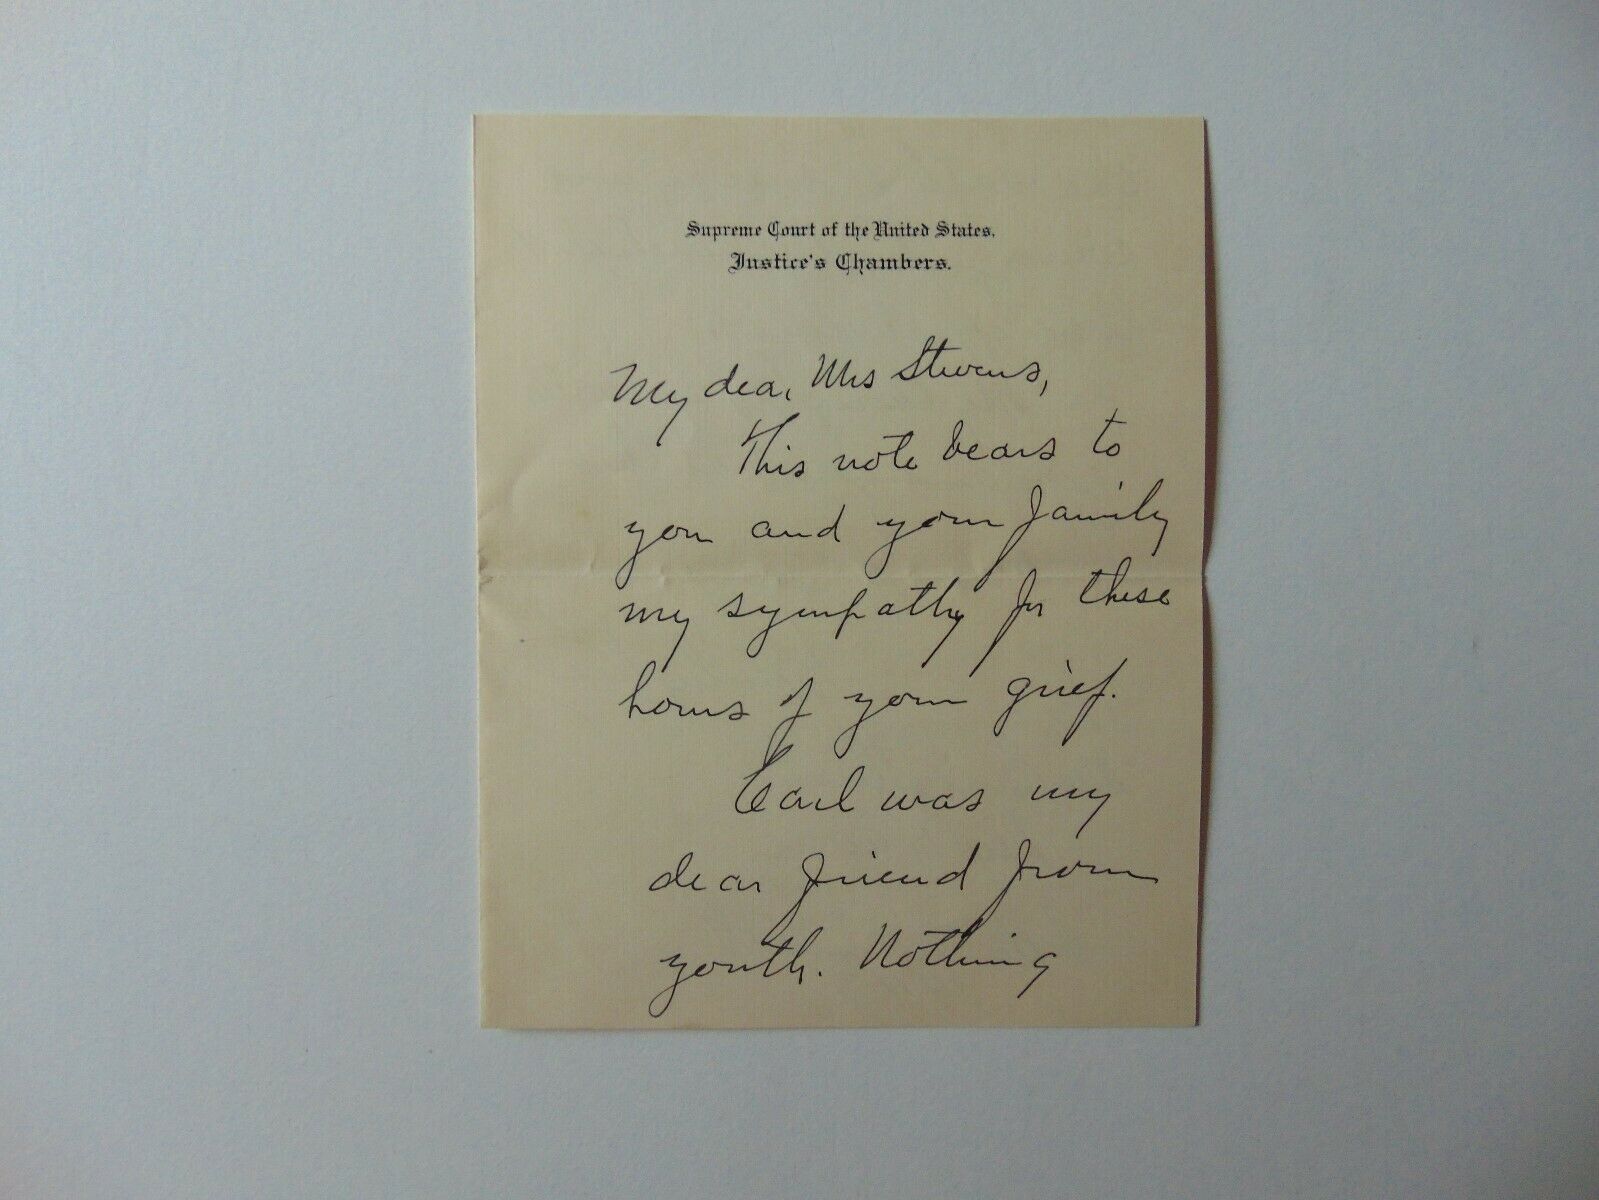 Supreme Court of the United States.
Justice's Chambers.
My dear Mrs Stevens,
This note bears to
you and your family
my sympathy for these
hours of your grief.
Carl was my
dear friend from
youth. Nothing